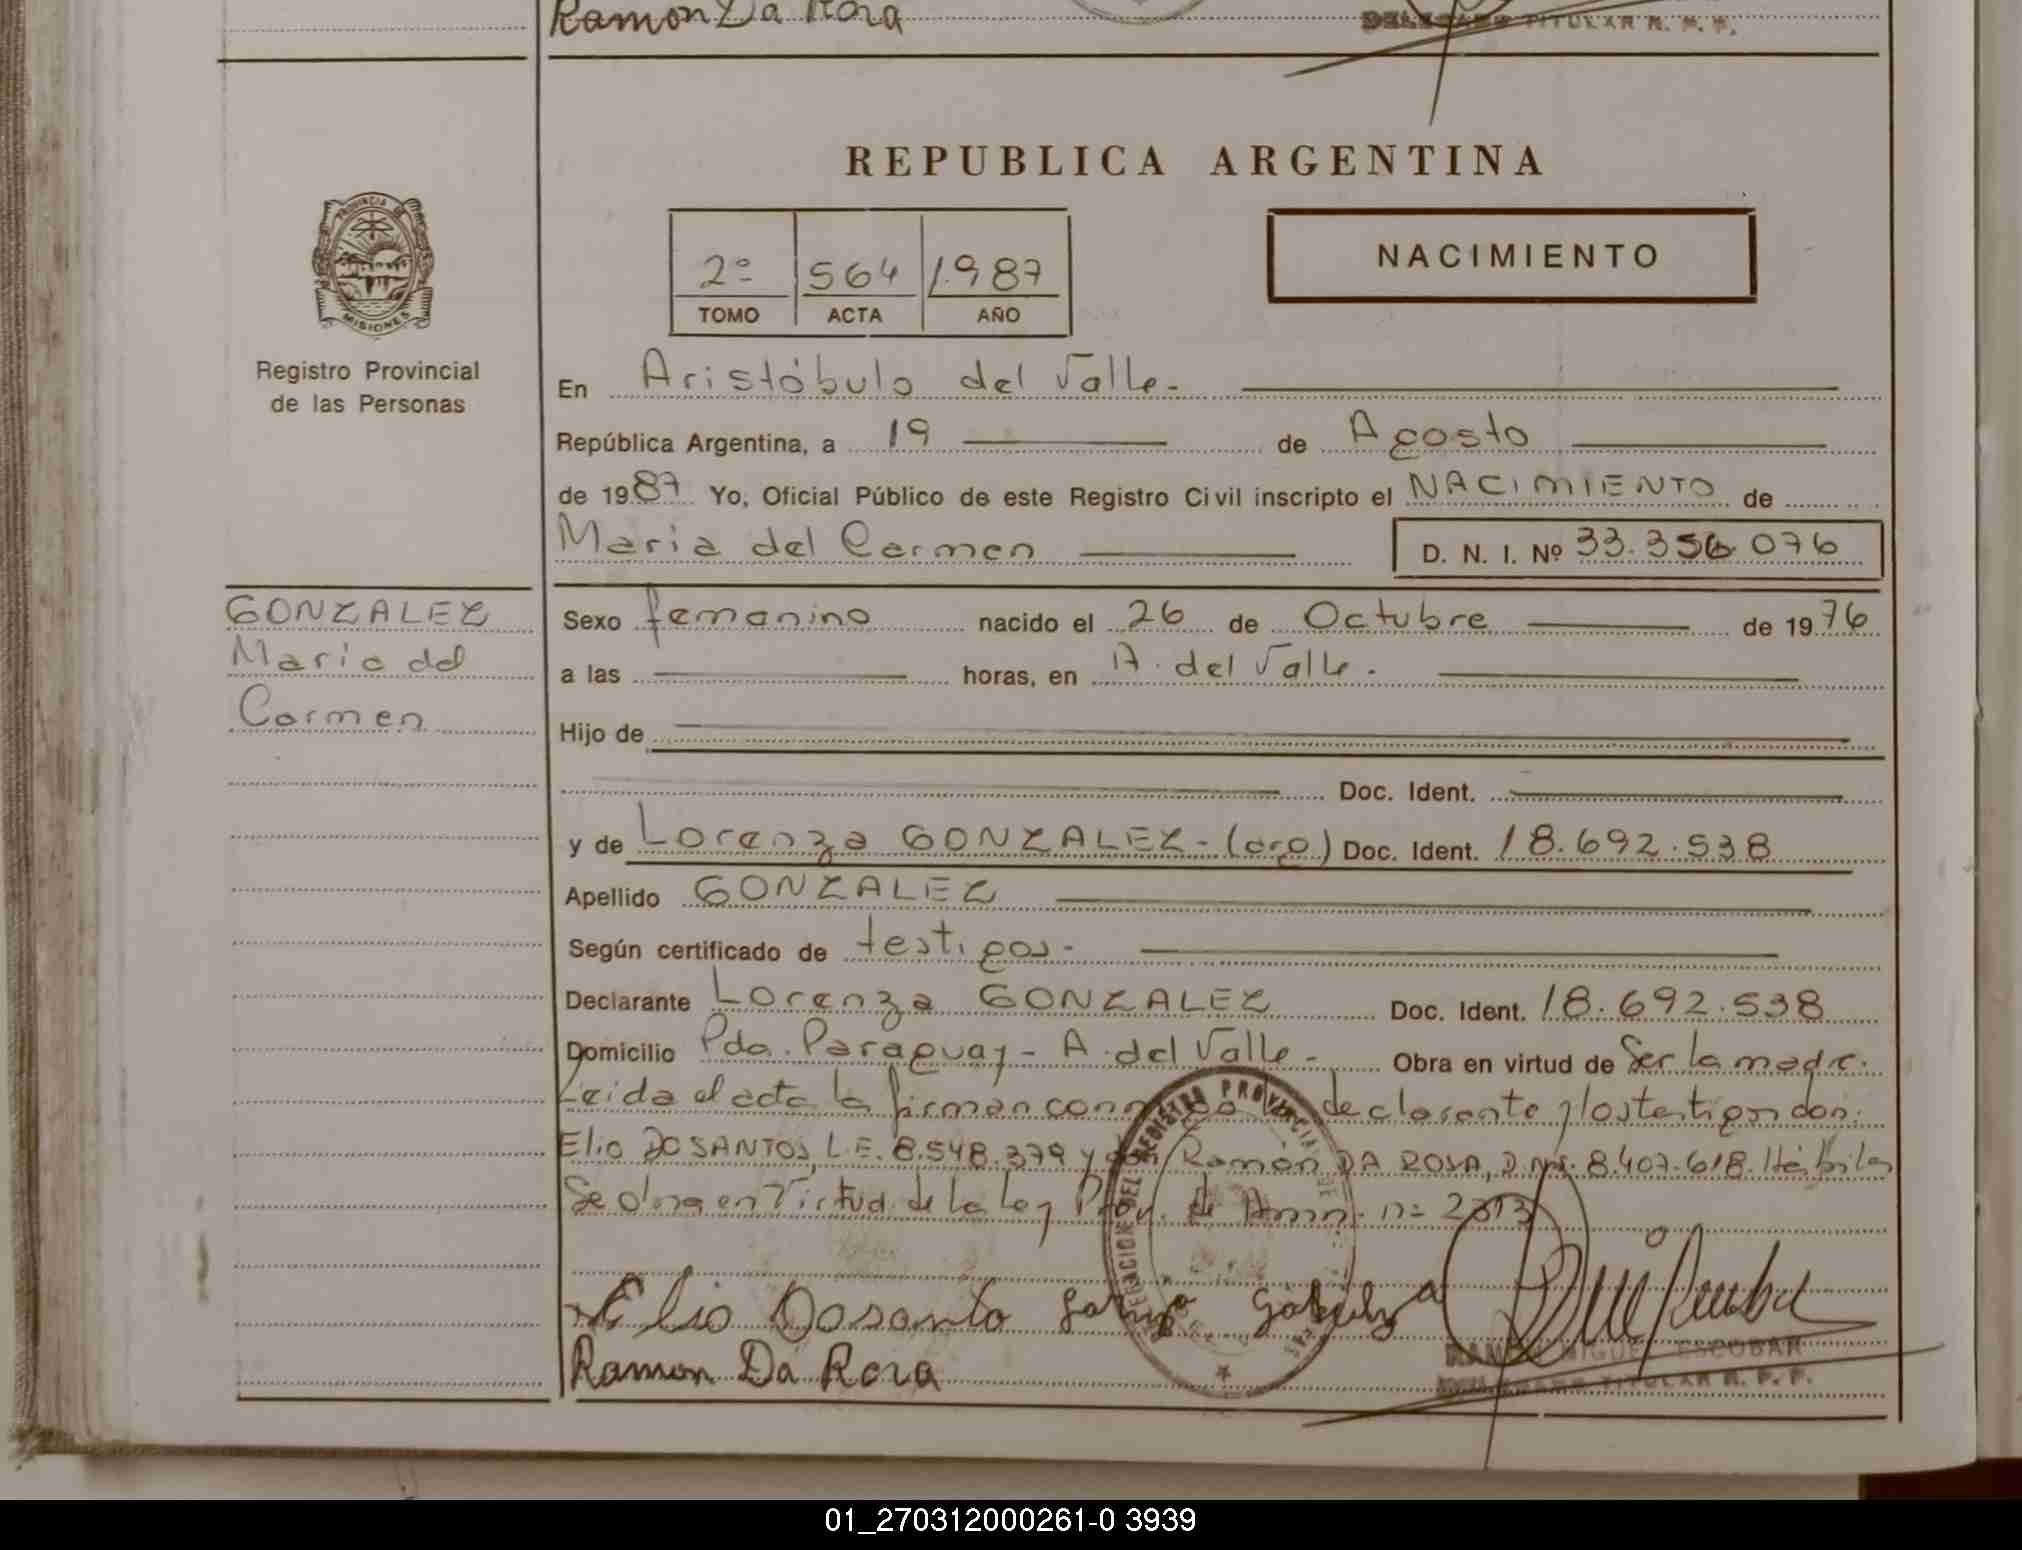 Ramon Da Rosa
DELEGADO TITULAR R. P. P.
REPUBLICA ARGENTINA
PROVINCIA DE
MISIONES
Registro Provincial
de las Personas
2º 564 1987
TOMO ACTA AÑO
NACIMIENTO
En Aristóbulo del Valle.-
República Argentina, a 19 de Agosto
de 1987 Yo, Oficial Público de este Registro Civil inscripto el NACIMIENTO de
Maria del Carmen D. N. I. Nº 33.356.076
GONZALEZ
Maria del
Carmen
Sexo femenino nacido el 26 de Octubre de 1976
a las horas, en A. del Valle.
Hijo de
Doc. Ident.
y de Lorenza GONZALEZ - (arg) Doc. Ident. 18.692.538
Apellido GONZALEZ
Según certificado de testigos.-
Declarante Lorenza GONZALEZ Doc. Ident. 18.692.538
Domicilio Pdo. Paraguay - A. del Valle.- Obra en virtud de Ser la madre.
Leida el acta la firman conmigo la declarante y los testigos don:
Elio DO SANTOS, L.E. 8.548.379 y don Ramón DA ROSA, D.N.I. 8.407.618. Hábiles
Se obra en Virtud de la Ley Prov. de Amn. nº 2313
Elio Dosanto
Ramon Da Rosa
REGISTRO PROVINCIAL DE
RAMON MIGUEL ESCOBAR
DELEGADO TITULAR R. P. P.
01_270312000261-0 3939